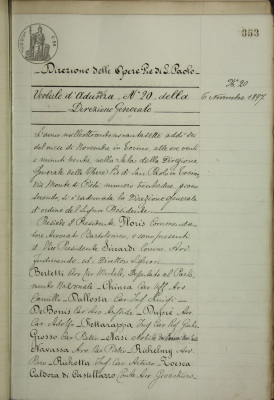 353
Direzione delle Opere Pie di S. Paolo
N. 20
Verbale d'Adunanza N. 20 della
6 Novembre 1897
Direzione Generale
L'anno milleottocentonovantasette addì sei
del mese di Novembre in Torino, alle ore venti
e minuti trenta, nella Sala della Direzione
Generale delle Opere Pie di San Paolo in Torino,
Via Monte di Pietà, numero trentadue, piano
secondo, si è radunata la Direzione Generale
d'ordine del Signor Presidente.
Presiede il Presidente Floris Commenda-
tore Avvocato Bartolomeo, e sono presenti
il Vice Presidente Sineo Avv.
Ferdinando, ed i Direttori Signori
Bertetti Avv. Michele, Deputato al Parla-
mento Nazionale - Chiara Cav. Uff. Avv.
Camillo - Dallosta Cav. Luigi -
De Bonis Cav. Avv. Aristide - Dupré Avv.
Cav. Adolfo - Ferrarappa Ing. Cav. Uff.
Grosso Cav. Pietro - Nasi
Navassa Avv. Cav. Pietro - Rubelmy Avv.
Piero - Ruhotta Ing. Cav. Arturo - Voersa
Caldera di Castellazzo